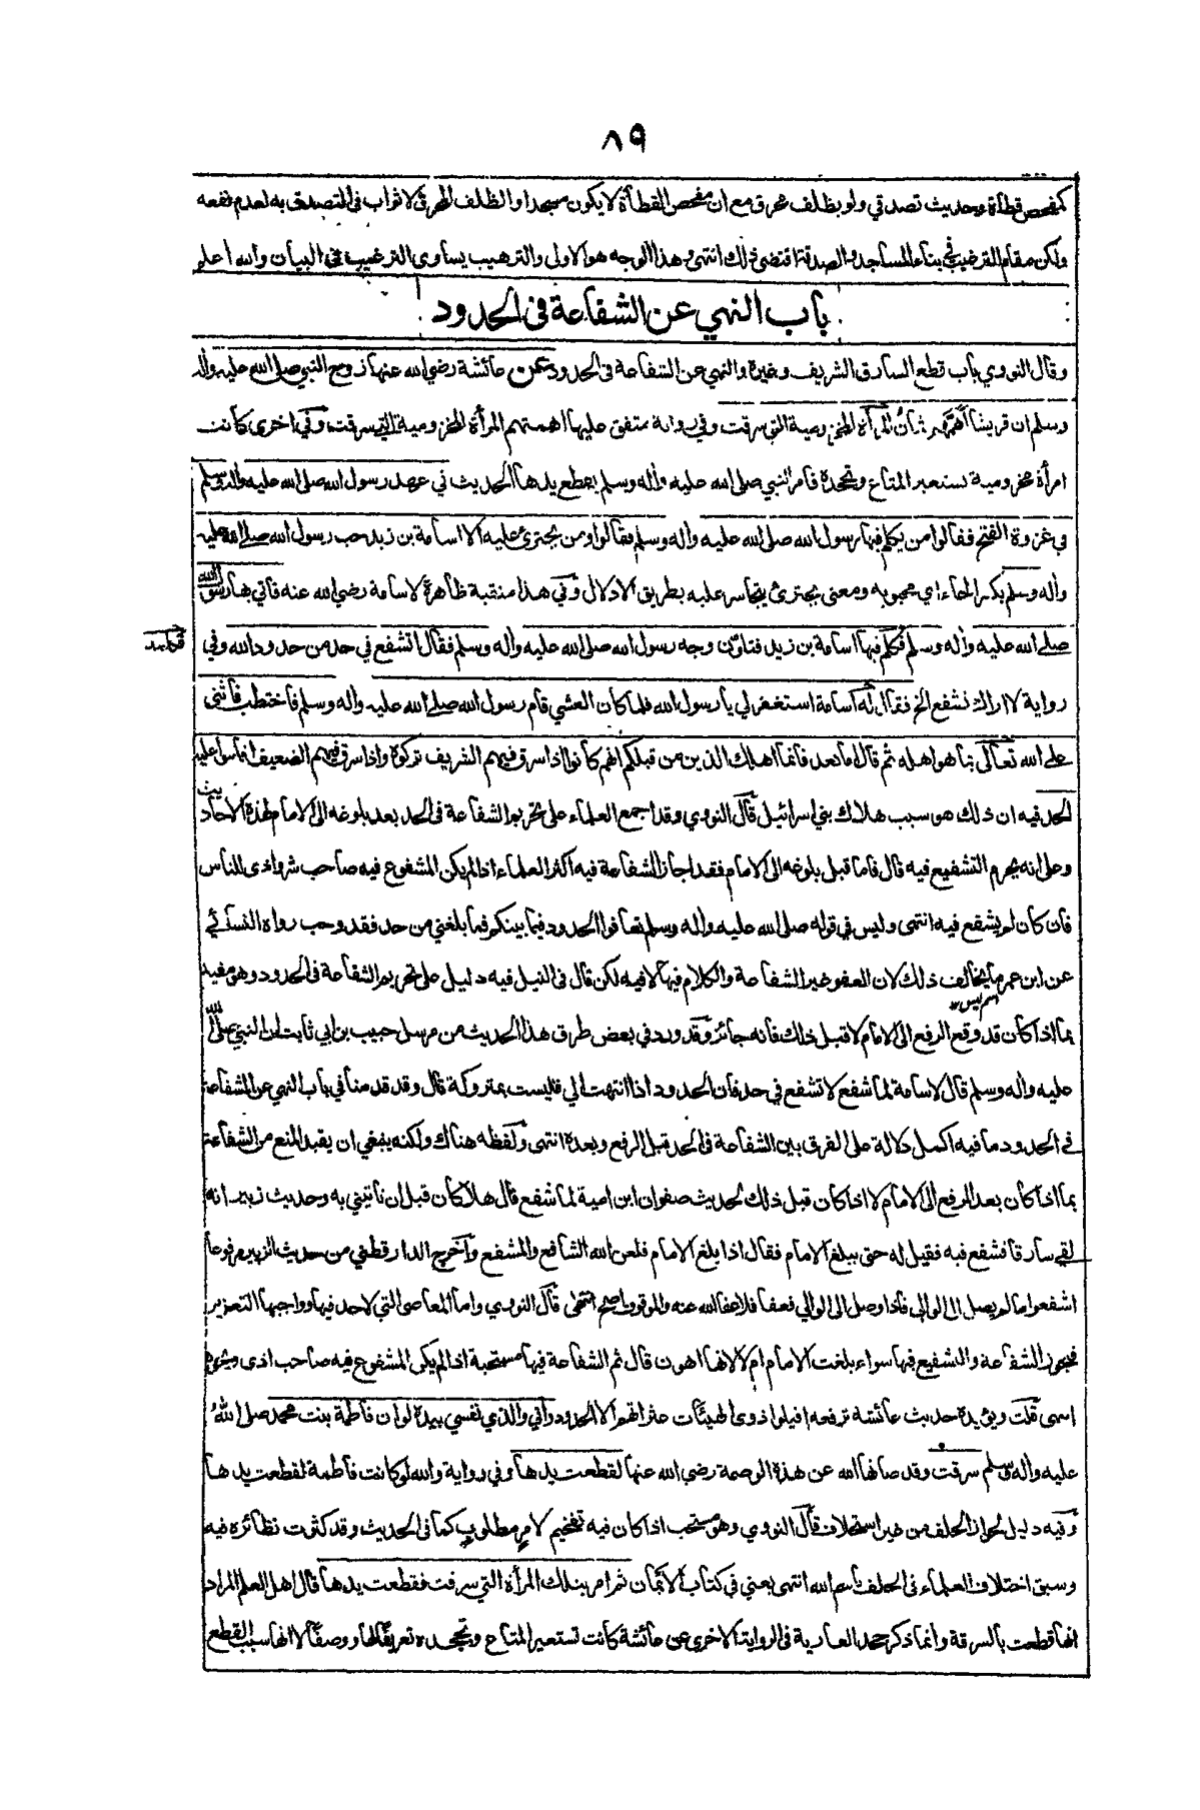 ٨٩
كمفحص قطاة وحديث تصدقي ولو بظلف محرق مع ان مفحص القطاة لا يكون مسجدا والظلف المحرق لا ثواب في التصدق به لعدم نفعه
ولكن مقام الترغيب في بناء المساجد والصدقة اقتضى ذلك انتهى وهذا الوجه هو الاولى والترهيب يساوى الترغيب في البيان والله اعلم
باب النهي عن الشفاعة في الحدود
وقال النووي باب قطع السارق الشريف وغيره والنهي عن الشفاعة في الحدود عن عائشة رضي الله عنها زوج النبي صلى الله عليه واله
وسلم ان قريشا اهمهم شأن المرأة المخزومية التي سرقت وفي رواية متفق عليها اهمتهم المرأة المخزومية التي سرقت وفي اخرى كانت
امرأة مخزومية تستعير المتاع وتجحده فامر النبي صلى الله عليه واله وسلم بقطع يدها الحديث في عهد رسول الله صلى الله عليه واله وسلم
في غزوة الفتح فقالوا من يكلم فيها رسول الله صلى الله عليه واله وسلم فقالوا ومن يجترئ عليه الا اسامة بن زيد حب رسول الله صلى الله عليه
واله وسلم بكسر الحاء اي محبوبه ومعنى يجترئ يتجاسر عليه بطريق الادلال وفي هذا منقبة ظاهرة لاسامة رضي الله عنه فاتي بها رسول الله
صلى الله عليه واله وسلم فكلم فيها اسامة بن زيد فتلون وجه رسول الله صلى الله عليه واله وسلم فقال اتشفع في حد من حدود الله وفي
رواية لا اراك تشفع الخ فقال له اسامة استغفر لي يا رسول الله فلما كان العشي قام رسول الله صلى الله عليه واله وسلم فاختطب فاثنى
على الله تعالى بما هو اهله ثم قال اما بعد فانما اهلك الذين من قبلكم انهم كانوا اذا سرق فيهم الشريف تركوه واذا سرق فيهم الضعيف اقاموا عليه
الحد فيه ان ذلك هو سبب هلاك بني اسرائيل قال النووي وقد اجمع العلماء على تحريم الشفاعة في الحد بعد بلوغه الى الامام لهذه الاحاديث
وعلى انه يحرم التشفيع فيه قال فاما قبل بلوغه الى الامام فقد اجاز الشفاعة فيه اكثر العلماء اذا لم يكن المشفوع فيه صاحب شر واذى للناس
فان كان لم يشفع فيه انتهى وليس في قوله صلى الله عليه واله وسلم تعافوا الحدود فيما بينكم فما بلغني من حد فقد وجب رواه النسائي
عن ابن عمر ما يخالف ذلك لان العفو غير الشفاعة والكلام فيها لا فيه لكن قال في النيل فيه دليل على تحريم الشفاعة في الحدود وهو مقيد
بما اذا كان قد وقع الرفع الى الامام لا قبل ذلك فانه جائز وقد ورد في بعض طرق هذا الحديث من مرسل حبيب بن ابي ثابت ان النبي صلى الله
عليه واله وسلم قال لاسامة لما شفع لا تشفع في حد فان الحدود اذا انتهت الي فليست بمتروكة قال وقد قدمنا في باب النهي عن الشفاعة
في الحدود ما فيه اكمل دلالة على الفرق بين الشفاعة في الحد قبل الرفع وبعده انتهى ولفظه هناك ولكنه ينبغي ان يقيد المنع من الشفاعة
بما اذا كان بعد الرفع الى الامام لا اذا كان قبل ذلك لحديث صفوان ابن امية لما شفع قال هلا كان قبل ان تأتيني به وحديث زبير انه
لقي سارقا فشفع فيه فقيل له حتى يبلغ الامام فقال اذا بلغ الامام فلعن الله الشافع والمشفع واخرج الدارقطني من حديث الزبير مرفوعا
اشفعوا ما لم يصل الى الوالي فاذا وصل الى الوالي فعفا فلا عفا الله عنه والموقوف اصح انتهى قال النووي واما المعاصي التي لا حد فيها وواجبها التعزير
فيجوز الشفاعة والتشفيع فيها سواء بلغت الامام ام لا لانها اهون قال ثم الشفاعة فيها مستحبة اذا لم يكن المشفوع فيه صاحب اذى ونحوه
انتهى قلت ويؤيده حديث عائشة ترفعه اقيلوا ذوى الهيئات عثراتهم الا الحدود واني والذي نفسي بيده لو ان فاطمة بنت محمد صلى الله
عليه واله وسلم سرقت وقد صانها الله عن هذه الوصمة رضي الله عنها لقطعت يدها وفي رواية والله لو كانت فاطمة لقطعت يدها
وفيه دليل لجواز الحلف من غير استحلاف قال النووي وهو مستحب اذا كان فيه تفخيم لامر مطلوب كما في الحديث وقد كثرت نظائره فيه
وسبق اختلاف العلماء في الحلف باسم الله انتهى يعني في كتاب الايمان ثم امر بتلك المرأة التي سرقت فقطعت يدها قال اهل العلم المراد
انها قطعت بالسرقة وانما ذكر جحد العارية في الرواية الاخرى عن عائشة كانت تستعير المتاع وتجحده تعريفا لها ووصفا لا انها سبب القطع